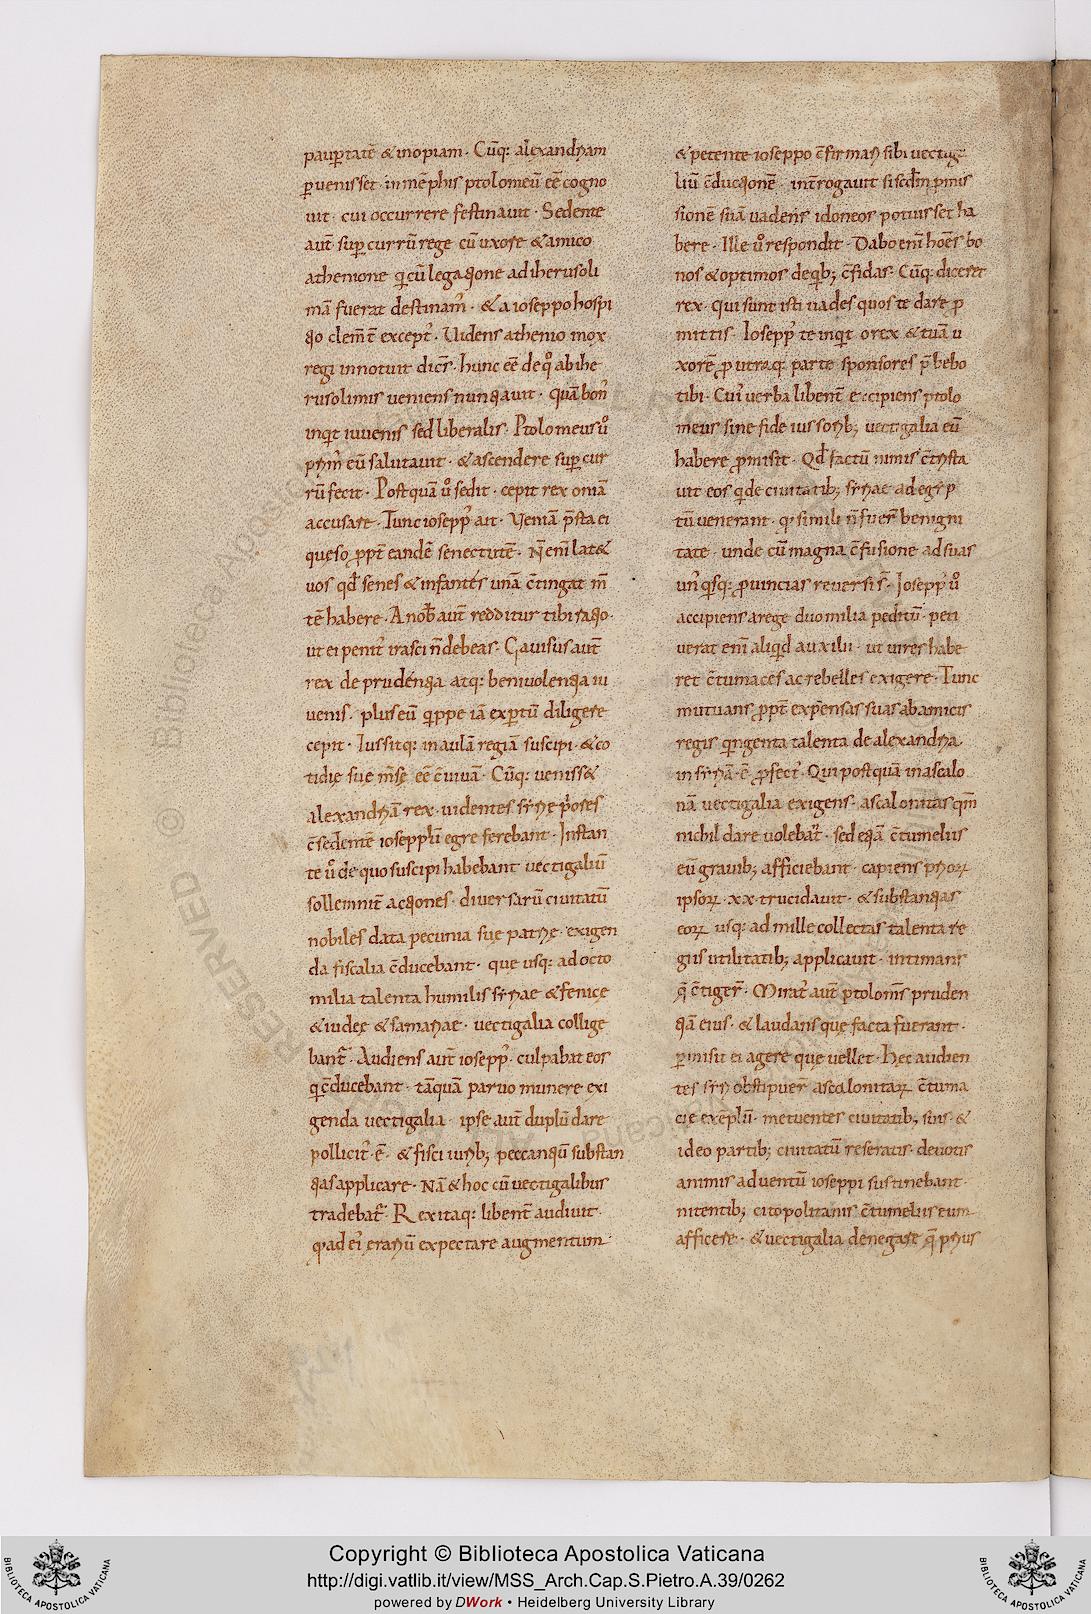 paup̱tatē &inopiam · Cūq; alexandriam
ꝑuenisset · inmēphis ptolomeū eē cogno
uit · cui occurrere festinauit · Sedente
aut̄ suꝑ currū rege cū uxore &amico
athenione qi cū legatione adiherusoli
mā fuerat destinatꝰ · &a ioseppo hospi
tio clem̄t̄ exceptꝰ · Uidens athenio mox
regi innotuit dicēs · hunc eē de qͦ abihe
rusolimis ueniens nuntiauit · quā bonꝰ
inqͥt iuuenis sed liberalis · Ptolomeus u̾o
prim̄ eū salutauit · &ascendere suꝑ cur
rū fecit · Postquā u̾o sedit · cepit rex oniā
accusare · Tunc ioseppꝰ ait · Veniā p̄sta ei
queso ꝓpt̄ eandē senectutē · N̄ enī lat&
uos qd̄ senes &infantes unā c̄tingat m̄
tē habere · A nob̄ aut̄ redditur tibi ratio ·
ut ei penit̾ irasci n̄ debeas · Gauisus aut̄
rex de prudentia atq; beniuolentia iu
uenis · plus eū qͥppe iā exꝑtū diligere
cepit · Iussitq; inaulā regiā suscipi · &co
tidię suę m̄sę eē c̄uiuā · Cūq;ueniss&
alexandriā rex · uidentes sirię p̾ores
c̄sedentē ioseppū egre ferebant · Instan
te u̾o de quo suscipi habebant uectigaliū
sollemnit̄ actiones · diuersarū ciuitatū
nobiles data pecunia suę patrię · exigen
da fiscalia c̄ducebant · que usq; ad octo
milia talenta humilis siriae &fenicę
&iudeę &samariae · uectigalia collige
bant̾ · Audiens aut̄ ioseppꝰ · culpabat eos
qi c̄ducebant · tāquā paruo munere exi
genda uectigalia · ipse aut̄ duplū dare
pollicitꝰ ē · &fisci iurib; peccantiū substan
tias applicare · Nā &hoc cū uectigalibus
tradebat̾ · Rex itaq; libent̄ audiuit ·
q̾ ad ei̾ erariū expectare augmentum ·
&petente ioseppo c̄firmari sibi uectiga
liū c̄ductionē · int̄rogauit si sc̄dm ꝓmis
sionē suā uadens idoneos potuisset ha
bere · Ille u̾o respondit · Dabo enī hoēs bo
nos &optimos de qͥb; c̄fidas · Cūq; diceret
rex · qui sunt isti uades quos te dare ꝓ
mittis · Ioseppꝰ te inqͥt o rex &tuā u
xorē ꝓ utraq; parte sponsores p̄bebo
tibi · Cui̾ uerba libent̄ excipiens ptolo
meus sine fideiussorib; uectigalia eū
habere ꝓmisit · Qd̄ factū nimis c̄trista
uit eos qͥde ciuitatib; siriae ad egip
tū uenerant · q̾ simili n̄ fuer̄ benigni
tate · unde cū magna c̄fusione ad suas
unꝰ qͥsq; ꝓuincias reuersi s̄ · Ioseppꝰ u̾o
accipiens a rege duo milia peditū · peti
uerat enī aliqͥd auxilii · ut uires habe
ret c̄tumaces ac rebelles exigere · Tunc
mutuans ꝓpt̄ expensas suas ab amicis
regis qͥngenta talenta de alexandria
in siriā · ē ꝓfectꝰ · Qui postquā in ascalo
nā uectigalia exigens · ascalonitas qm̄
nichil dare uolebāt · sed etiā c̄tumeliis
eū grauib; afficiebant · capiens prioꝝ
ipsoꝝ · xx · trucidauit · &substantias
eoꝝ usq; ad mille collectas talenta re
giis utilitatib; applicauit · intimans
q̄ c̄tiger̄ · Mirat̾ aut̄ ptolom̄s pruden
tiā eius · &laudans quę facta fuerant ·
ꝑmisit ei agere quę uellet · Hęc audien
tes siri obstipuer̄ ascalonitaꝝ c̄tuma
cię exēplū · metuentes ciuitatib; suis · &
ideo partib; ciuitatū reseratis · deuotis
animis aduentū ioseppi sustinebant ·
nitentib; citopolitanis c̄tumeliis eum
afficere · &uectigalia denegare q̄ prius